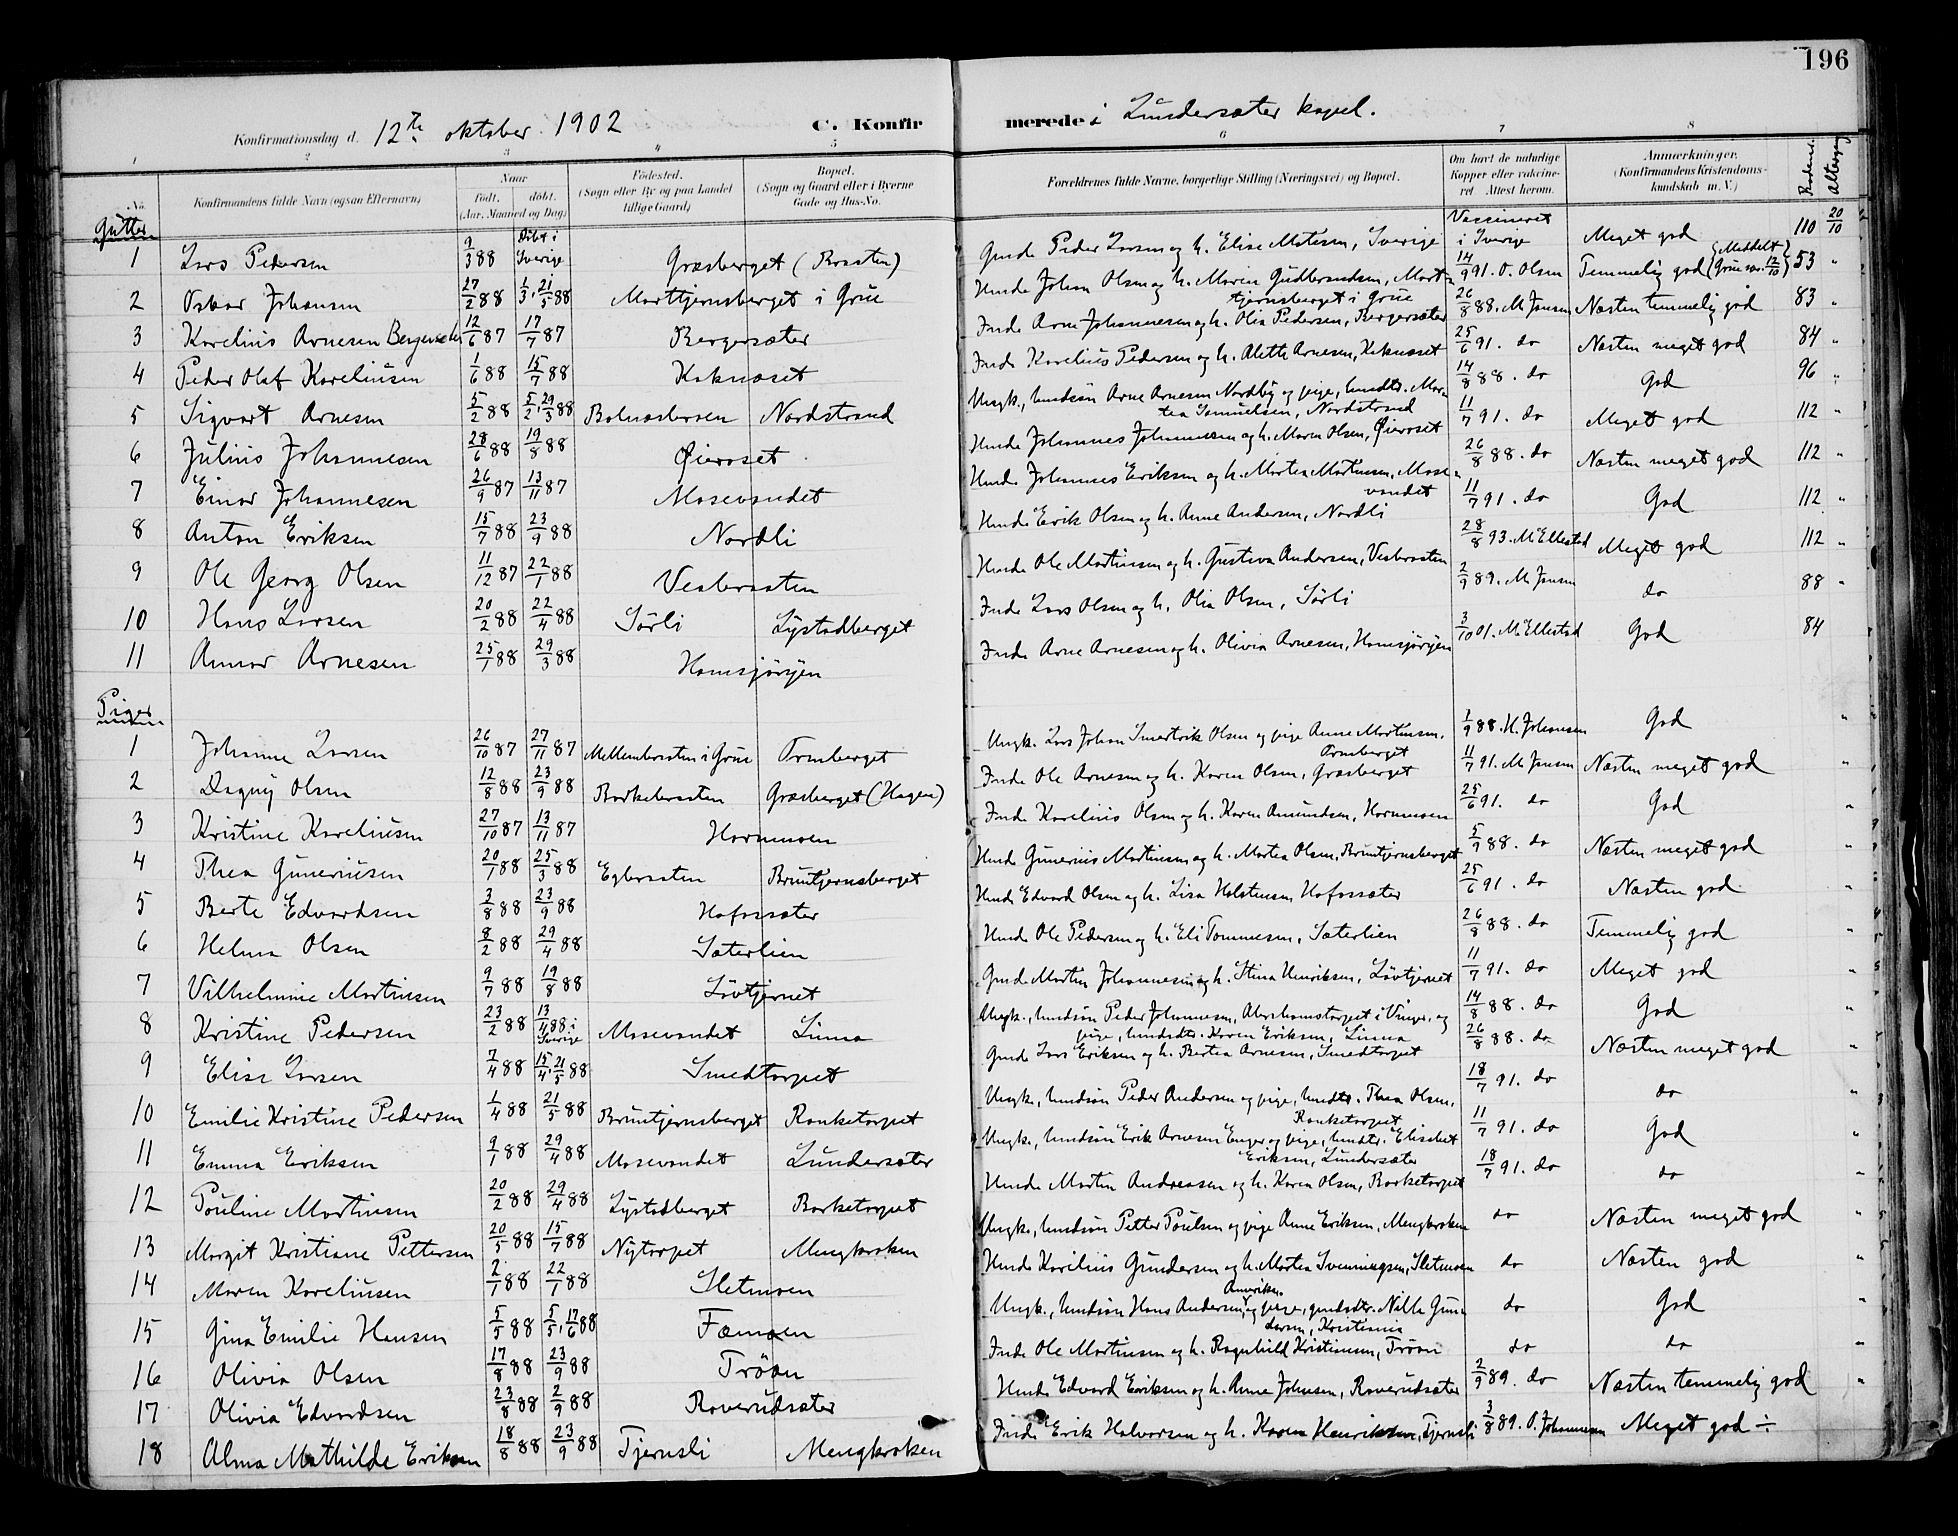 196
Konfirmationsdag d. 12te oktober 1902 C. Konfirmerede i Lundersæter kapel.
1 2 3 4 5 6 7 8
No. Konfirmandens fulde Navn (ogsaa Efternavn) Naar født. døbt. (Aar, Maaned og Dag) Fødested. (Sogn eller By og paa Landet tillige Gaard.) Bopæl. (Sogn og Gaard eller i Byerne Gade og Hus-No.) Forældrenes fulde Navne, borgerlige Stilling (Næringsvei) og Bopæl. Om havt de naturlige Kopper eller vaccineret. Attest herom. Anmærkninger. (Konfirmandens Kristendomskundskab m. V.) Altergang
Gutter
1 Lars Pedersen 9/3 88 Døbt i Sverige Græsberget (Braaten) Gmd. Peder Larsen og h. Elise Matesen, Sverige Vaccineret i Sverige Meget god 110 20/10
2 Oskar Johansen 27/2 88 1/3, 21/5 88 Marttjernsberget i Grue Hmd. Johan Olsen og h. Maren Gudbrandsen, Marttjernsberget i Grue 14/9 91. O. Olsen Temmelig god (Meddelt Grue 12/10) 53 "
3 Karelius Arnesen Bergersæter 12/6 87 17/7 87 Bergersæter Indr. Arne Johannesen og h. Olia Pedersen, Bergersæter 26/8 88. M. Jensen Næsten temmelig god 83 "
4 Peder Olaf Kareliusen 1/6 88 15/7 88 Kaknæset Indr. Karelius Pedersen og h. Alette Arnesen, Kaknæset 25/6 91. do Næsten meget god 84 "
5 Sigvart Arnesen 5/2 88 5/2, 29/3 88 Nordstrand Ungk., hmdsøn Arne Arnesen Nordby og pige, hmdtr. Martea Samuelsen, Nordstrand 14/8 88. do God 96 "
6 Julius Johannesen 28/6 88 19/8 88 Øieraset Hmd. Johannes Johannesen og h. Maren Olsen, Øieraset 11/7 91. do Meget god 112 "
7 Einar Johannesen 26/9 87 13/11 87 Masevandet Hmd. Johannes Eriksen og h. Martea Martinsen, Masevandet 26/8 88. do Næsten meget god 112 "
8 Anton Eriksen 15/7 88 23/9 88 Nordli Hmd. Erik Olsen og h. Anne Andersen, Nordli 11/7 91. do God 112 "
9 Ole Georg Olsen 11/12 87 22/1 88 Vesbraaten Hmd. Ole Martinsen og h. Gustava Andersen, Vesbraaten 28/8 93. M. Ellestad Meget god 112 "
10 Hans Larsen 20/2 88 22/4 88 Sørli Lystadberget Indr. Lars Olsen og h. Olia Olsen, Sørli 2/9 89. M. Jensen do 88 "
11 Annar Arnesen 25/1 88 29/3 88 Hamsjørgen Indr. Arne Arnesen og h. Olivia Arnesen, Hamsjørgen 3/10 01. M. Ellestad God 84
Piger
1 Johanne Larsen 26/10 87 27/11 87 Mellembraaten i Grue Ormberget Ungk. Lars Johan Olsen og pige Anne Martinsen, Ormberget 1/9 88. H. Johansen God "
2 Dagny Olsen 12/8 88 23/9 88 Barkebraaten Græsberget (Hagen) Indr. Ole Arnesen og h. Karen Olsen, Græsberget 11/7 91. M. Jensen Næsten meget god
3 Kristine Kareliusen 27/10 87 13/11 87 Harmoen Indr. Karelius Olsen og h. Karen Amundsen, Harmoen 25/6 91. do God "
4 Thea Gunerinsen 20/1 88 25/3 88 Egbraaten Bruntjernsberget Hmd. Gunerius Martinsen og h. Martea Olsen, Bruntjernsberget 5/9 88. do Næsten meget god "
5 Berte Edvardsen 3/8 88 23/9 88 Hafossæter Hmd. Edvard Olsen og h. Lisa Halstensen, Hafossæter 25/6 91. do Næsten god "
6 Helma Olsen 8/2 88 29/4 88 Sæterlien Hmd. Ole Pedersen og h. Eli Tommesen, Sæterlien 26/8 88. do Temmelig god "
7 Vilhelmine Martinsen 9/7 88 19/8 88 Løvtjernet Gmd. Martin Johannesen og h. Stina Henriksen, Løvtjernet 11/7 91. do Meget god "
8 Kristine Pedersen 23/2 88 13/4 88 i Sverige Masevandet Linna Ungk., hmdsøn Peder Johannesen, Abrahamstorpet i Vinger, og pige, hmdsdtr. Karen Eriksen, Linna 14/8 88. do God "
9 Elise Larsen 7/4 88 15/4, 21/5 88 Smedtorpet Gmd. Lars Eriksen og h. Bertea Arnesen, Smedtorpet 26/8 88. do Næsten meget god "
10 Emilie Kristine Pedersen 1/4 88 21/5 88 Bruntjernsberget Ranketorpet Ungk., hmdsøn Peder Andersen og pige, hmdtr. Thea Olsen, Ranketorpet 18/7 91. do do "
11 Emma Eriksen 9/1 88 29/4 88 Masevandet Lundersæter Ungk., hmdsøn Erik Arnesen Enger og pige, hmdtr. Elisabet Eriksen, Lundersæter 11/7 91. do God "
12 Pauline Martinsen 20/2 88 29/4 88 Lystadberget Barketorpet Hmd. Martin Andreassen og h. Karen Olsen, Barketorpet 18/7 91. do do "
13 Margit Kristiane Pettersen 20/5 88 15/7 88 Nytorpet Mengkroken Ungk., hmdsøn Petter Paulsen og pige Anne Eriksen, Mengkroken do Næsten meget god "
14 Maren Kareliusen 2/1 88 22/1 88 Sletmoen Hmd. Karelius Gundersen og h. Martea Svenningsen, Sletmoen do Næsten god "
15 Gina Emilie Hansen 5/5 88 5/5, 17/6 88 Fæmoen Ungk., hmdsøn Hans Andersen, Amerika, og pige, gmdsdtr. Nille Gundersen, Kristiania do God "
16 Olivia Olsen 17/8 88 23/9 88 Trøen Indr. Ole Martinsen og h. Ragnhild Kristiansen, Trøen do do "
17 Olivia Edvardsen 23/8 88 2/9 88 Raverudsæter Hmd. Edvard Eriksen og h. Anne Johnsen, Raverudsæter 2/9 89. do Næsten temmelig god "
18 Alma Mathilde Eriksen 18/8 88 23/9 88 Tjernsli Mengkroken Indr. Erik Halvorsen og h. Karen Henriksen, Tjernsli 3/8 89. O. Johannesen Meget god ÷